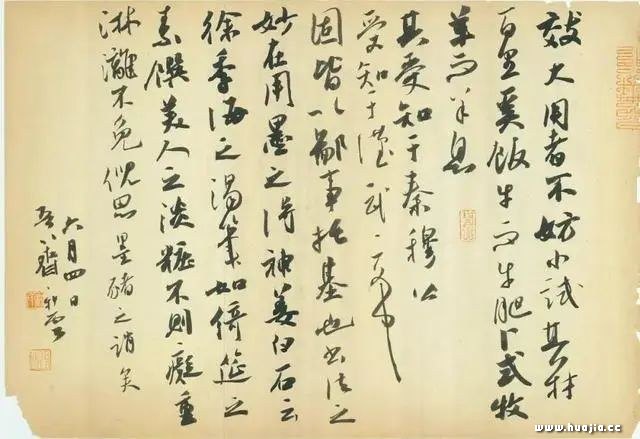 效大用者不妨小試其材
百里奚飯牛而牛肥卜式牧
羊而羊息
其受知于秦穆公
受知于漢武
固皆以鄙事托基也书法之
妙在用墨之得神姜白石云
徐季海之渴筆如綺筵之
素饌美人之淡粧不則癡重
淋灕不免倪思墨豬之誚矣
六月四日
www.huajia.cc